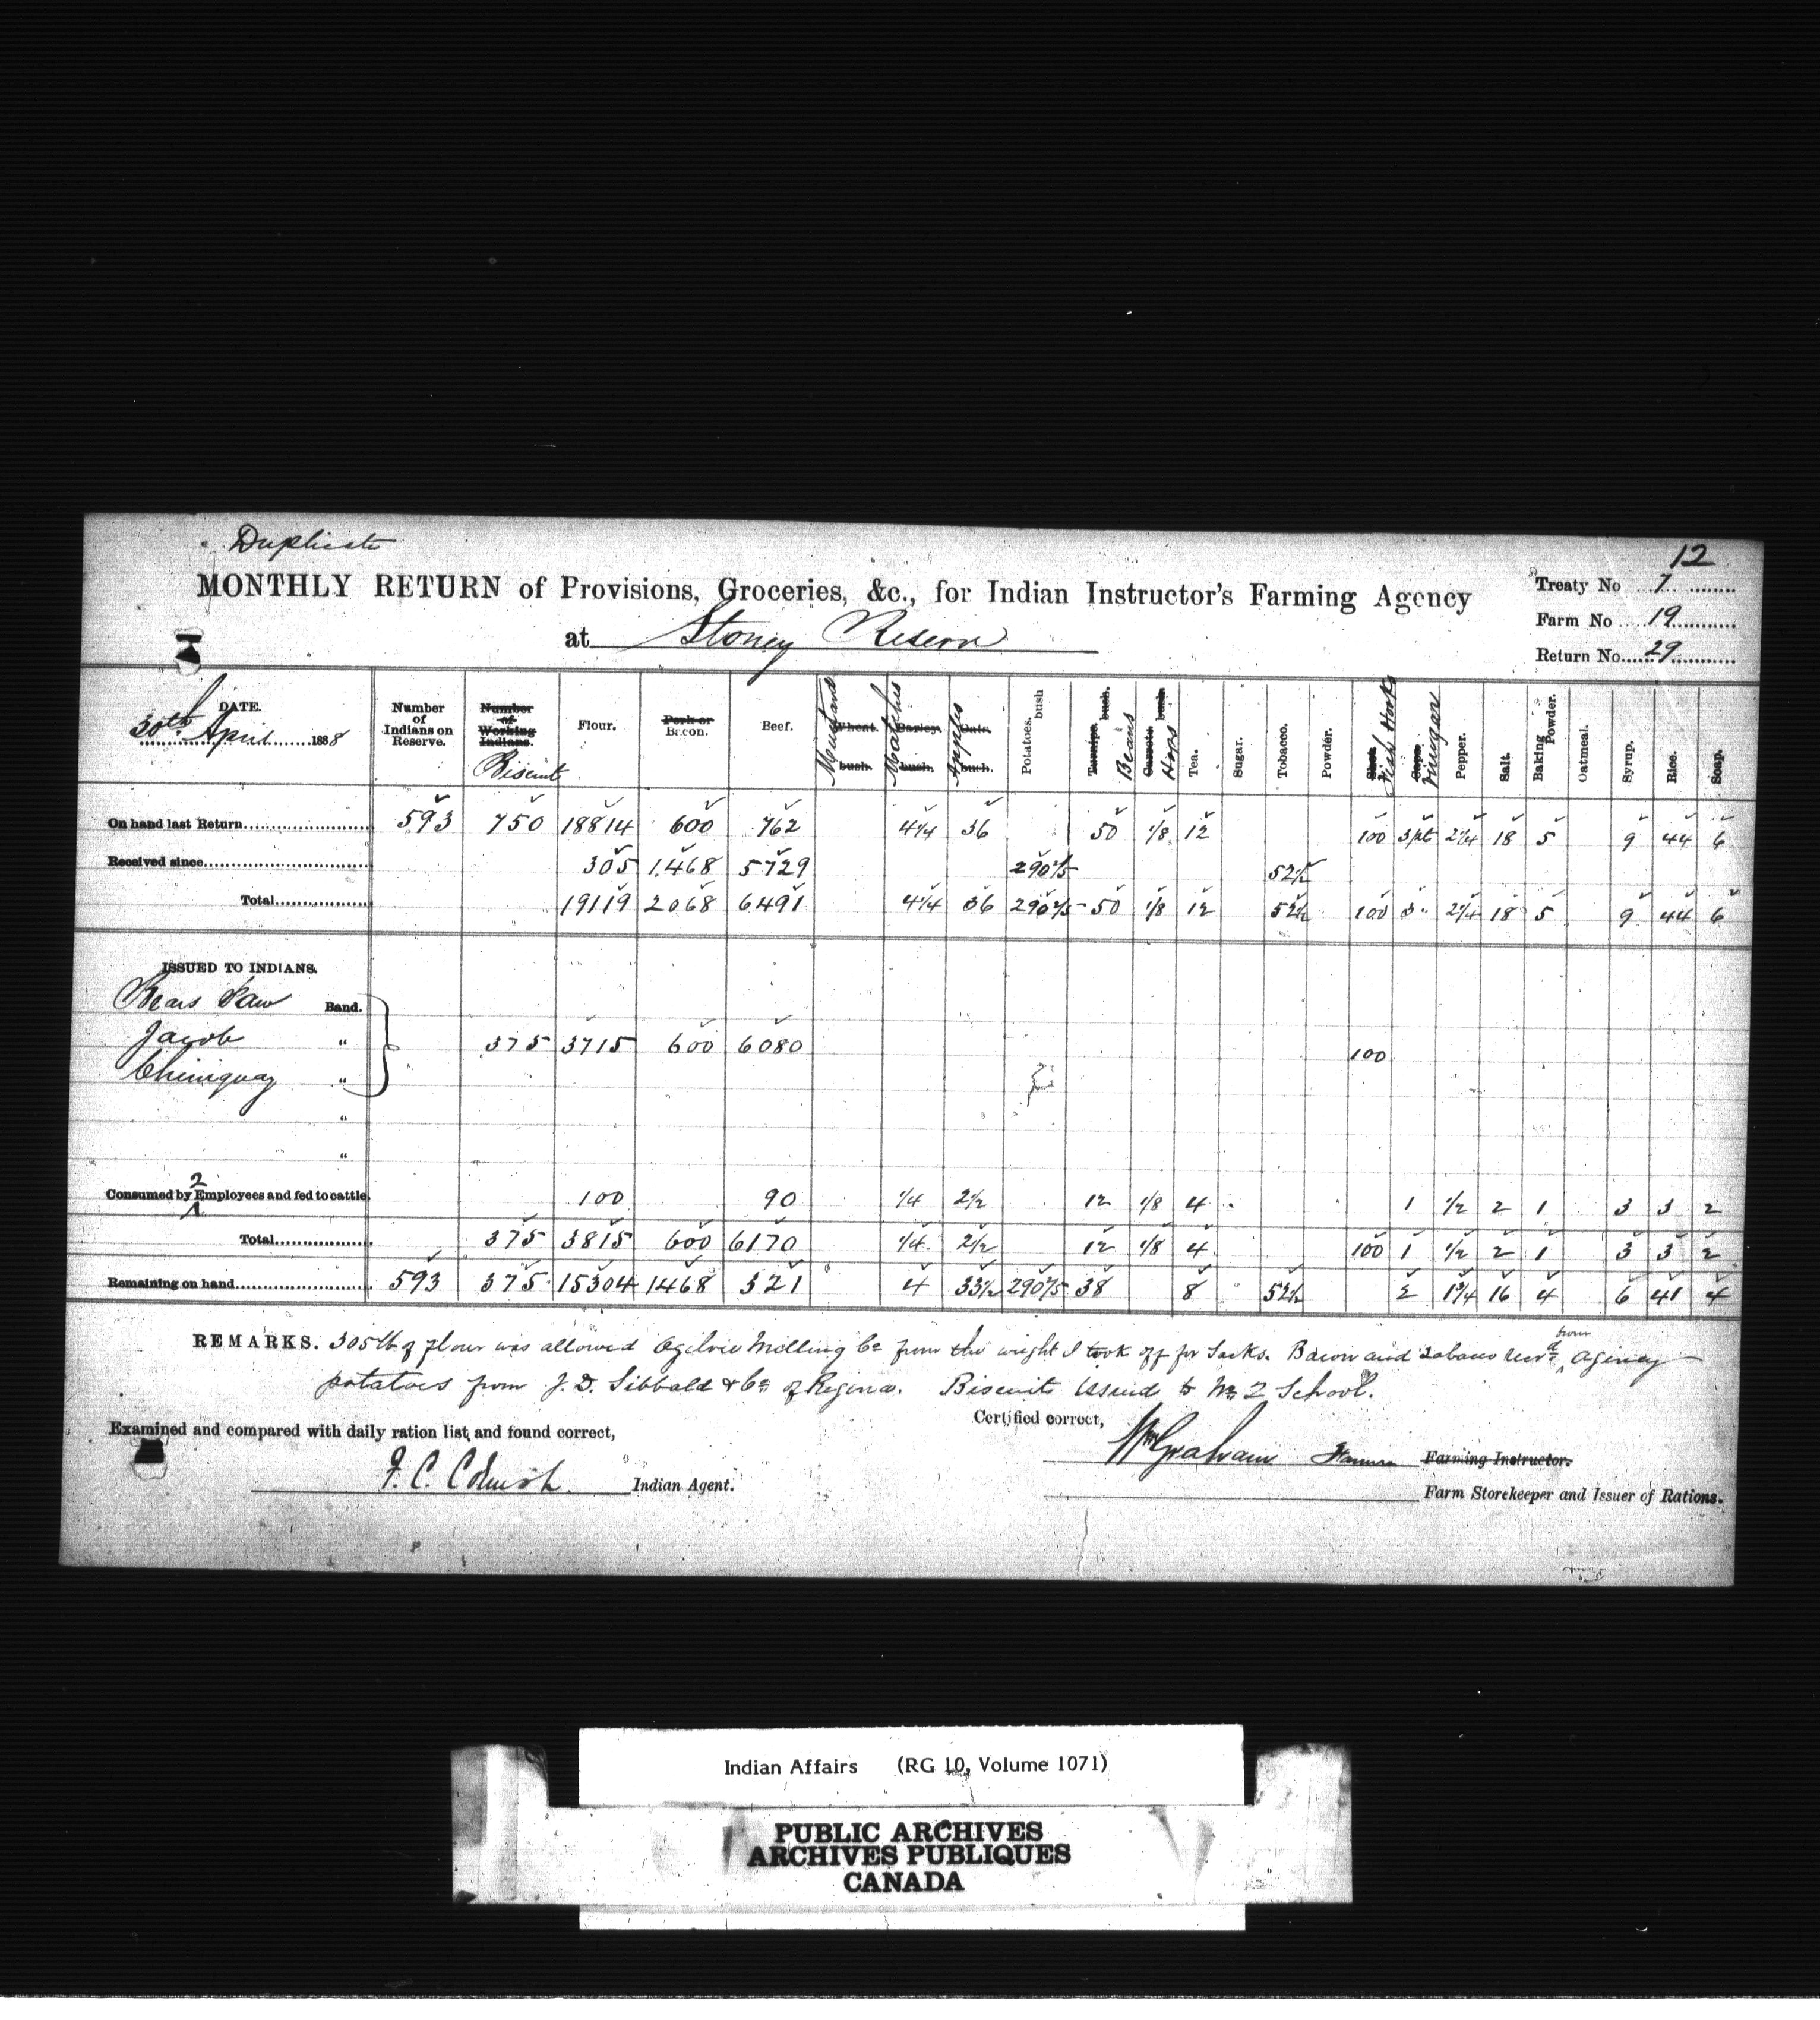 Duplicate
12
MONTHLY RETURN of Provisions, Groceries, &c., for Indian Instructor's Farming Agency
at Stoney Reserve
Treaty No 7
Farm No 19
Return No. 29
DATE. 30th April 1888
Number of Indians on Reserve. Number of Working Indians. Biscuit Flour. Pork or Bacon. Beef. Wheat. bush. Mustard Barley. bush. Matches Oats. bush. Apples Potatoes. bush Turnips bush. Beans Carrots bush Hops Tea. Sugar. Tobacco. Powder. Shot. Fish Hooks Caps. Vinegar Pepper. Salt. Baking Powder. Oatmeal. Syrup. Rice. Soap.
On hand last Return 593 750 18814 600 762 4 1/4 36 50 1/8 12 100 3 pts 2 1/4 18 5 9 44 6
Received since 305 1468 5729 290 2/5 52 1/2
Total 19119 2068 6491 4 1/4 36 290 2/5 50 1/8 12 52 1/2 100 3 " 2 1/4 18 5 9 44 6
ISSUED TO INDIANS.
Bears Paw Band.
Jacob " 375 3715 600 6080 100
Chiniquay "
"
"
2
Consumed by Employees and fed to cattle 100 90 1/4 2 1/2 12 1/8 4 1 1/2 2 1 3 3 2
Total 375 3815 600 6170 1/4 2 1/2 12 1/8 4 100 1 1/2 2 1 3 3 2
Remaining on hand 593 375 15304 1468 321 4 33 1/2 290 2/5 38 8 52 1/2 2 1 3/4 16 4 6 41 4
REMARKS. 305 lb of flour was allowed Ogilvie Milling Co from the weight I took off for Sacks. Bacon and tobacco recvd from Agency
potatoes from J. D. Sibbald & Co of Regina. Biscuits Issued to No 2 School.
Examined and compared with daily ration list, and found correct,
Certified correct,
F. C. Cornish Indian Agent.
Wm Graham Farmer Farming Instructor.
Farm Storekeeper and Issuer of Rations.
Indian Affairs (RG 10, Volume 1071)
PUBLIC ARCHIVES
ARCHIVES PUBLIQUES
CANADA